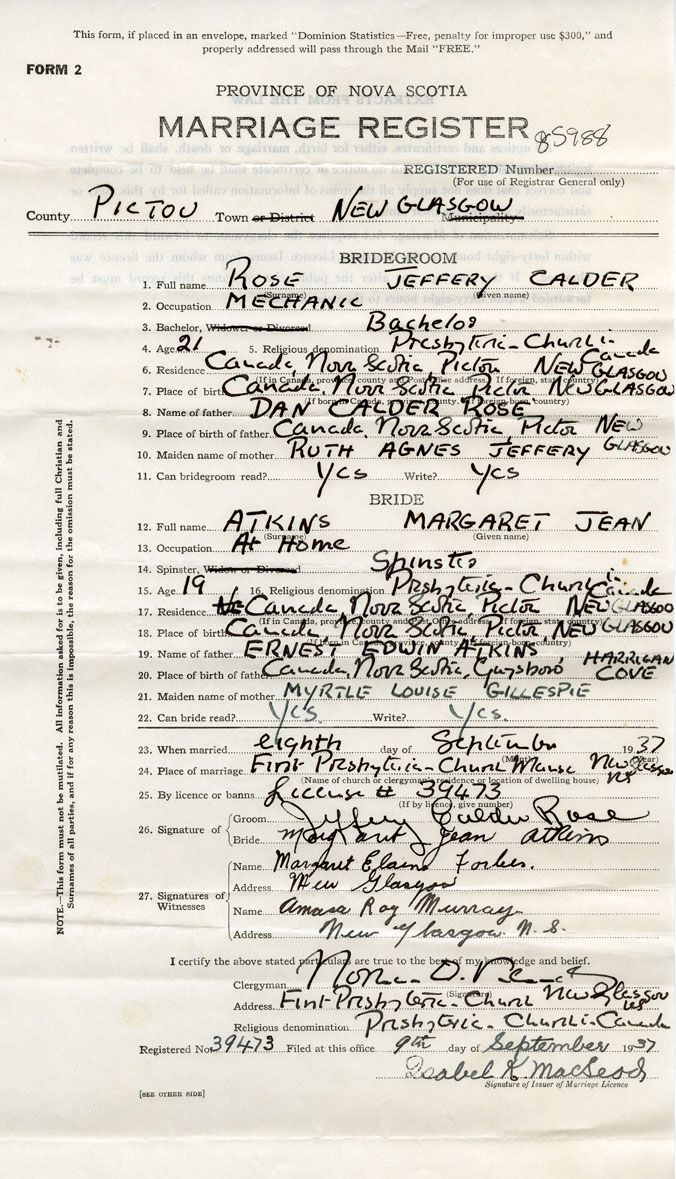 This form, if placed in an envelope, marked "Dominion Statistics—Free, penalty for improper use $300," and
properly addressed will pass through the Mail "FREE."
FORM 2
PROVINCE OF NOVA SCOTIA
MARRIAGE REGISTER 85988
REGISTERED Number
(For use of Registrar General only)
County PICTOU Town or District NEW GLASGOW Municipality
BRIDEGROOM
1. Full name ROSE JEFFERY CALDER
(Surname) (Given name)
2. Occupation MECHANIC
3. Bachelor, Widower or Divorced Bachelor
4. Age 21 5. Religious denomination Presbyterian Church in Canada
6. Residence Canada, Nova Scotia, Pictou NEW GLASGOW
(If in Canada, province county and Post Office address. If foreign, state country)
7. Place of birth Canada, Nova Scotia, Pictou NEW GLASGOW
(If born in Canada, province, county. If foreign born, country)
8. Name of father DAN CALDER ROSE
9. Place of birth of father Canada, Nova Scotia Pictou NEW GLASGOW
10. Maiden name of mother RUTH AGNES JEFFERY
11. Can bridegroom read? Yes Write? Yes
BRIDE
12. Full name ATKINS MARGARET JEAN
(Surname) (Given name)
13. Occupation At Home
14. Spinster, Widow or Divorced Spinster
15. Age 19 16. Religious denomination Presbyterian Church in Canada
17. Residence Canada, Nova Scotia, Pictou NEW GLASGOW
(If in Canada, province, county and Post Office address. If foreign, state country)
18. Place of birth Canada, Nova Scotia, Pictou, NEW GLASGOW
19. Name of father ERNEST EDWIN ATKINS
20. Place of birth of father Canada, Nova Scotia, Guysboro HARRIGAN COVE
21. Maiden name of mother MYRTLE LOUISE GILLESPIE
22. Can bride read? Yes. Write? Yes.
23. When married eighth day of September 1937
(Month) (Year)
24. Place of marriage First Presbyterian Church Manse New Glasgow NS
(Name of church or clergyman's residence or location of dwelling house)
25. By licence or banns License # 39473
(If by licence, give number)
26. Signature of Groom Jeffery Calder Rose
Bride Margaret Jean Atkins
27. Signatures of Witnesses
Name Margaret Elaine Forbes.
Address New Glasgow
Name Amasa Roy Murray
Address New Glasgow N. S.
I certify the above stated particulars are true to the best of my knowledge and belief.
Clergyman Norman D.
(Signature)
Address First Presbyterian Church New Glasgow NS
Religious denomination Presbyterian Church in Canada
Registered No. 39473 Filed at this office 9th day of September 1937
Isabel K. MacLeod
Signature of Issuer of Marriage Licence
[SEE OTHER SIDE]
NOTE.—This form must not be mutilated. All information asked for is to be given, including full Christian and
Surnames of all parties, and if for any reason this is impossible, the reason for the omission must be stated.